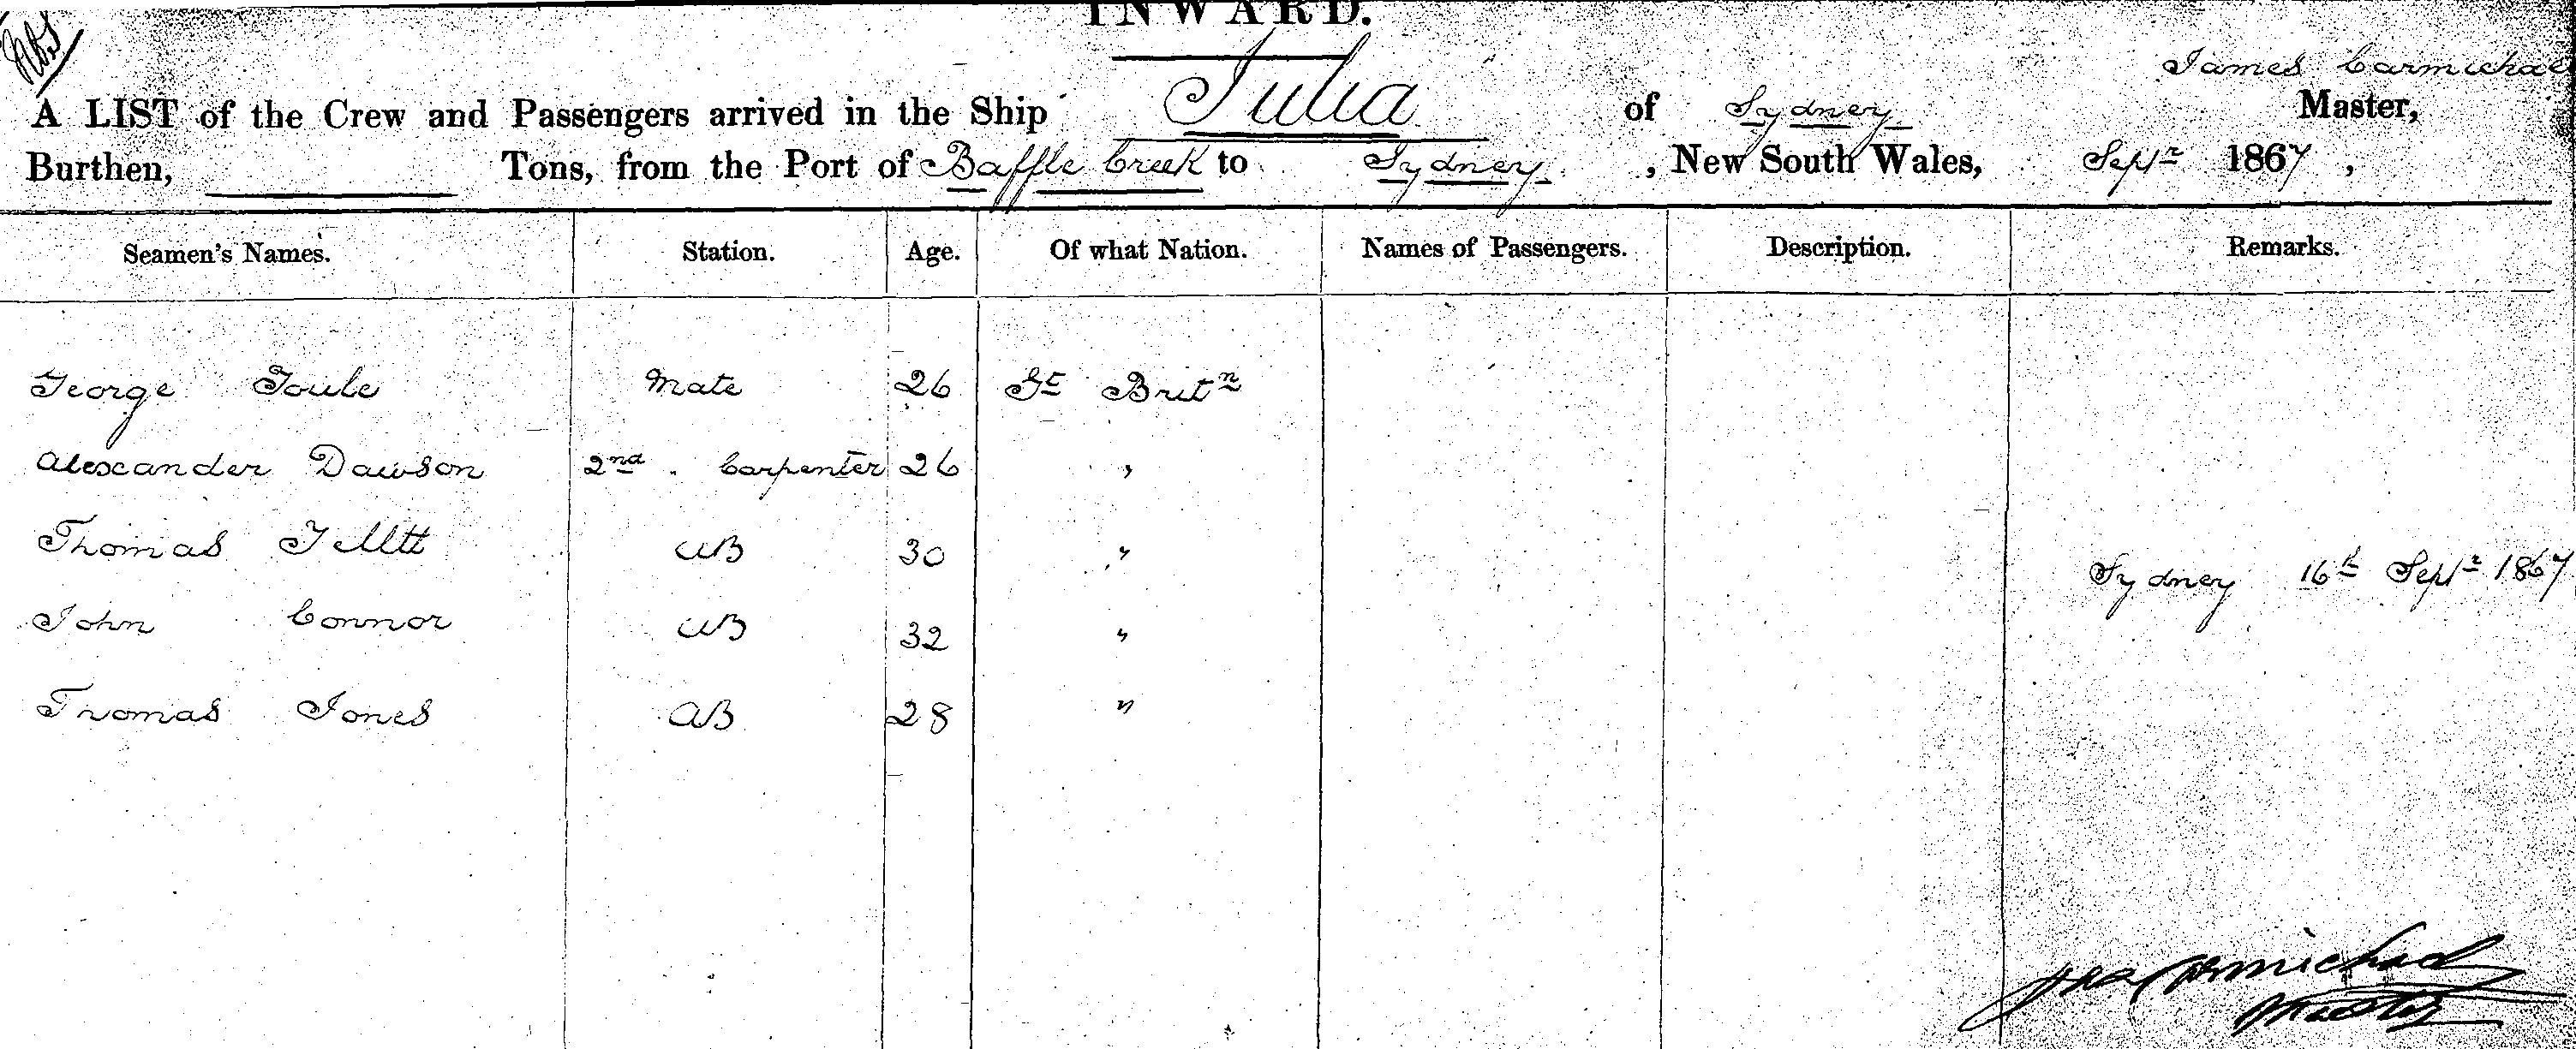 INWARD.
James Carmichael
A LIST of the Crew and Passengers arrived in the Ship Julia of Sydney Master,
Burthen, Tons, from the Port of Baffle Creek to Sydney, New South Wales, Septr 1867,
Seamen's Names. Station. Age. Of what Nation. Names of Passengers. Description. Remarks.
George Mate 26 Gt Britn
Alexander Dawson 2nd. Carpenter 26 "
Thomas AB 30 "
Sydney 16th Septr 1867
John Connor AB 32 "
Thomas Jones AB 28 "
Jas Carmichael
Master